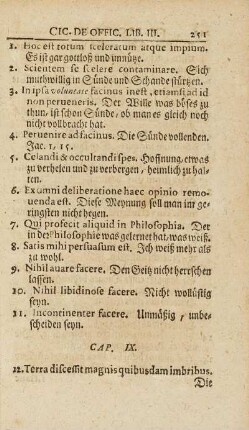 CIC. DE OFFIC. LIB. III. 251
1. Hoc est totum sceleratum atque impium.
Es ist gar gottloß und unnütze.
2. Scientem se scelere contaminare. Sich
muthwillig in Sünde und Schande stürtzen.
3. In ipsa voluntate facinus inest, etiamsi ad id
non perueneris. Der Wille was böses zu
thun, ist schon Sünde, ob man es gleich noch
nicht vollbracht hat.
4. Peruenire ad facinus. Die Sünde vollenden.
Jac. 1, 15.
5. Celandi & occultrandi spes. Hoffnung, etwas
zu verhelen und zu verbergen, heimlich zu hal-
ten.
6. Ex omni deliberatione haec opinio remo-
uenda est. Diese Meynung soll man im ge-
ringsten nicht hegen.
7. Qui profecit aliquid in Philosophia. Der
in der Philosophie was gelernet hat, was weiß.
8. Satis mihi persuasum est. Ich weiß mehr als
zu wohl.
9. Nihil auare facere. Den Geitz nicht herrschen
lassen.
10. Nihil libidinose facere. Nicht wollüstig
seyn.
11. Incontinenter facere. Unmäßig, unbe-
scheiden seyn.
CAP. IX.
12. Terra discessit magnis quibusdam imbribus.
Die